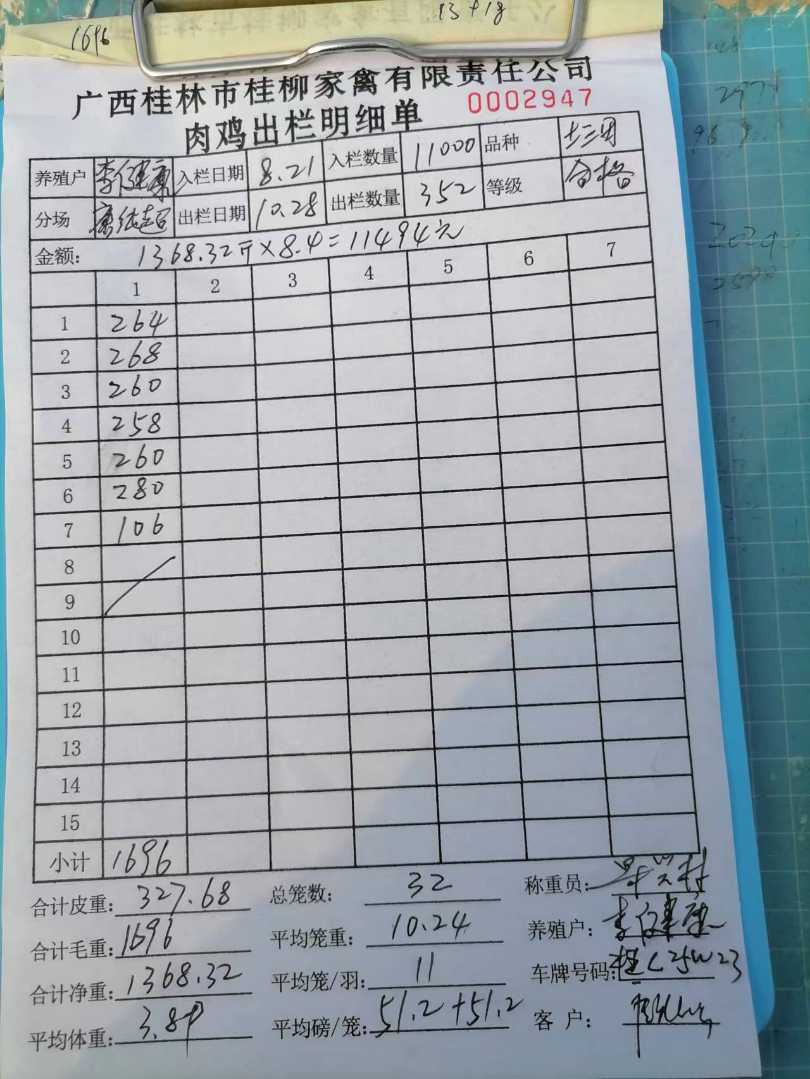 1696
13+18
广西桂林市桂柳家禽有限责任公司
肉鸡出栏明细单 0002947
养殖户 李健康 入栏日期 8.21 入栏数量 11000 品种 土三男
分场 出栏日期 10.28 出栏数量 352 等级 合格
金额: 1368.32斤×8.4=11494元
1 2 3 4 5 6 7
1 264
2 268
3 260
4 258
5 260
6 280
7 106
8
9
10
11
12
13
14
15
小计 1696
合计皮重: 327.68 总笼数: 32 称重员:
合计毛重: 1696 平均笼重: 10.24 养殖户: 李健康
合计净重: 1368.32 平均笼/羽: 11 车牌号码: 桂C25W23
平均体重: 3.89 平均磅/笼: 51.2+51.2 客 户: